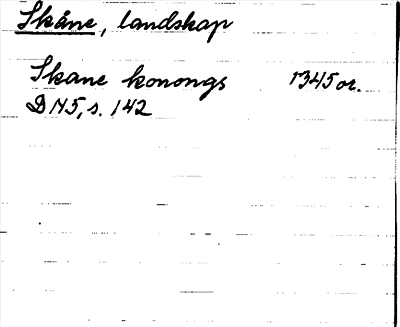 Skåne, landskap
Skane konongs 1345 or.
DN 5, s. 142